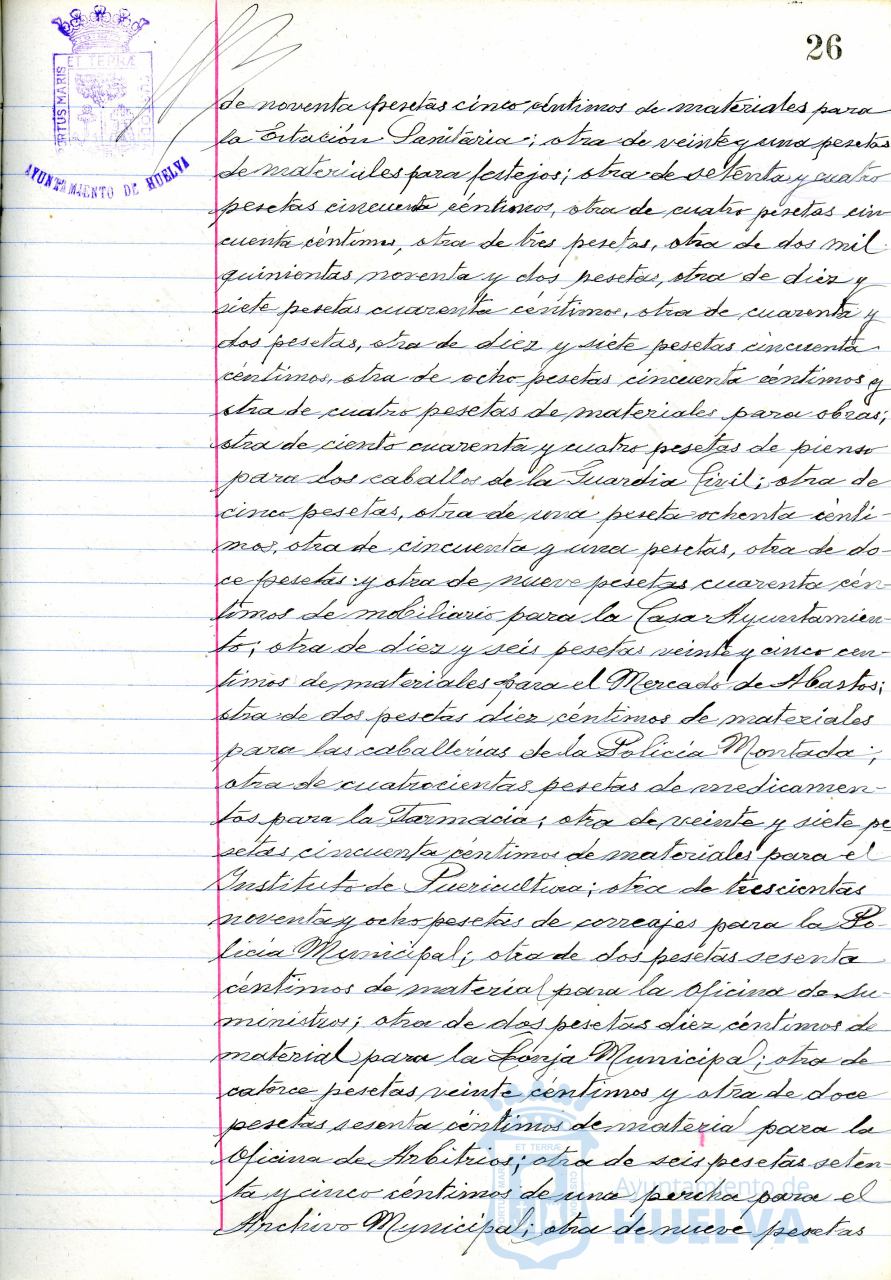 26
PORTUS MARIS
ET TERRÆ
CUSTODIA
AYUNTAMIENTO DE HUELVA
de noventa pesetas cinco céntimos de materiales para
la Estación Sanitaria; otra de veinte y una pesetas
de materiales para festejos; otra de setenta y cuatro
pesetas cincuenta céntimos, otra de cuatro pesetas cin
cuenta céntimos, otra de tres pesetas, otra de dos mil
quinientas noventa y dos pesetas, otra de diez y
siete pesetas cuarenta céntimos, otra de cuarenta y
dos pesetas, otra de diez y siete pesetas cincuenta
céntimos, otra de ocho pesetas cincuenta céntimos y
otra de cuatro pesetas de materiales para obras;
otra de ciento cuarenta y cuatro pesetas de pienso
para los caballos de la Guardia Civil; otra de
cinco pesetas, otra de una peseta ochenta cénti-
mos, otra de cincuenta y una pesetas, otra de do-
ce pesetas y otra de nueve pesetas cuarenta cén-
timos de mobiliario para la Casa Ayuntamien-
to; otra de diez y seis pesetas veinte y cinco cen-
timos de materiales para el Mercado de Abastos;
otra de dos pesetas diez céntimos de materiales
para las caballerías de la Policía Montada;
otra de cuatrocientas pesetas de medicamen-
tos para la Farmacia; otra de veinte y siete pe
setas cincuenta céntimos de materiales para el
Instituto de Puericultura; otra de trescientas
noventa y ocho pesetas de correajes para la Po-
licía Municipal; otra de dos pesetas sesenta
céntimos de material para la Oficina de Su-
ministros; otra de dos pesetas diez céntimos de
material para la Lonja Municipal; otra de
catorce pesetas veinte céntimos y otra de doce
pesetas sesenta céntimos de material para la
Oficina de Arbitrios; otra de seis pesetas seten-
ta y cinco céntimos de una percha para el
Archivo Municipal; otra de nueve pesetas
Ayuntamiento de
HUELVA